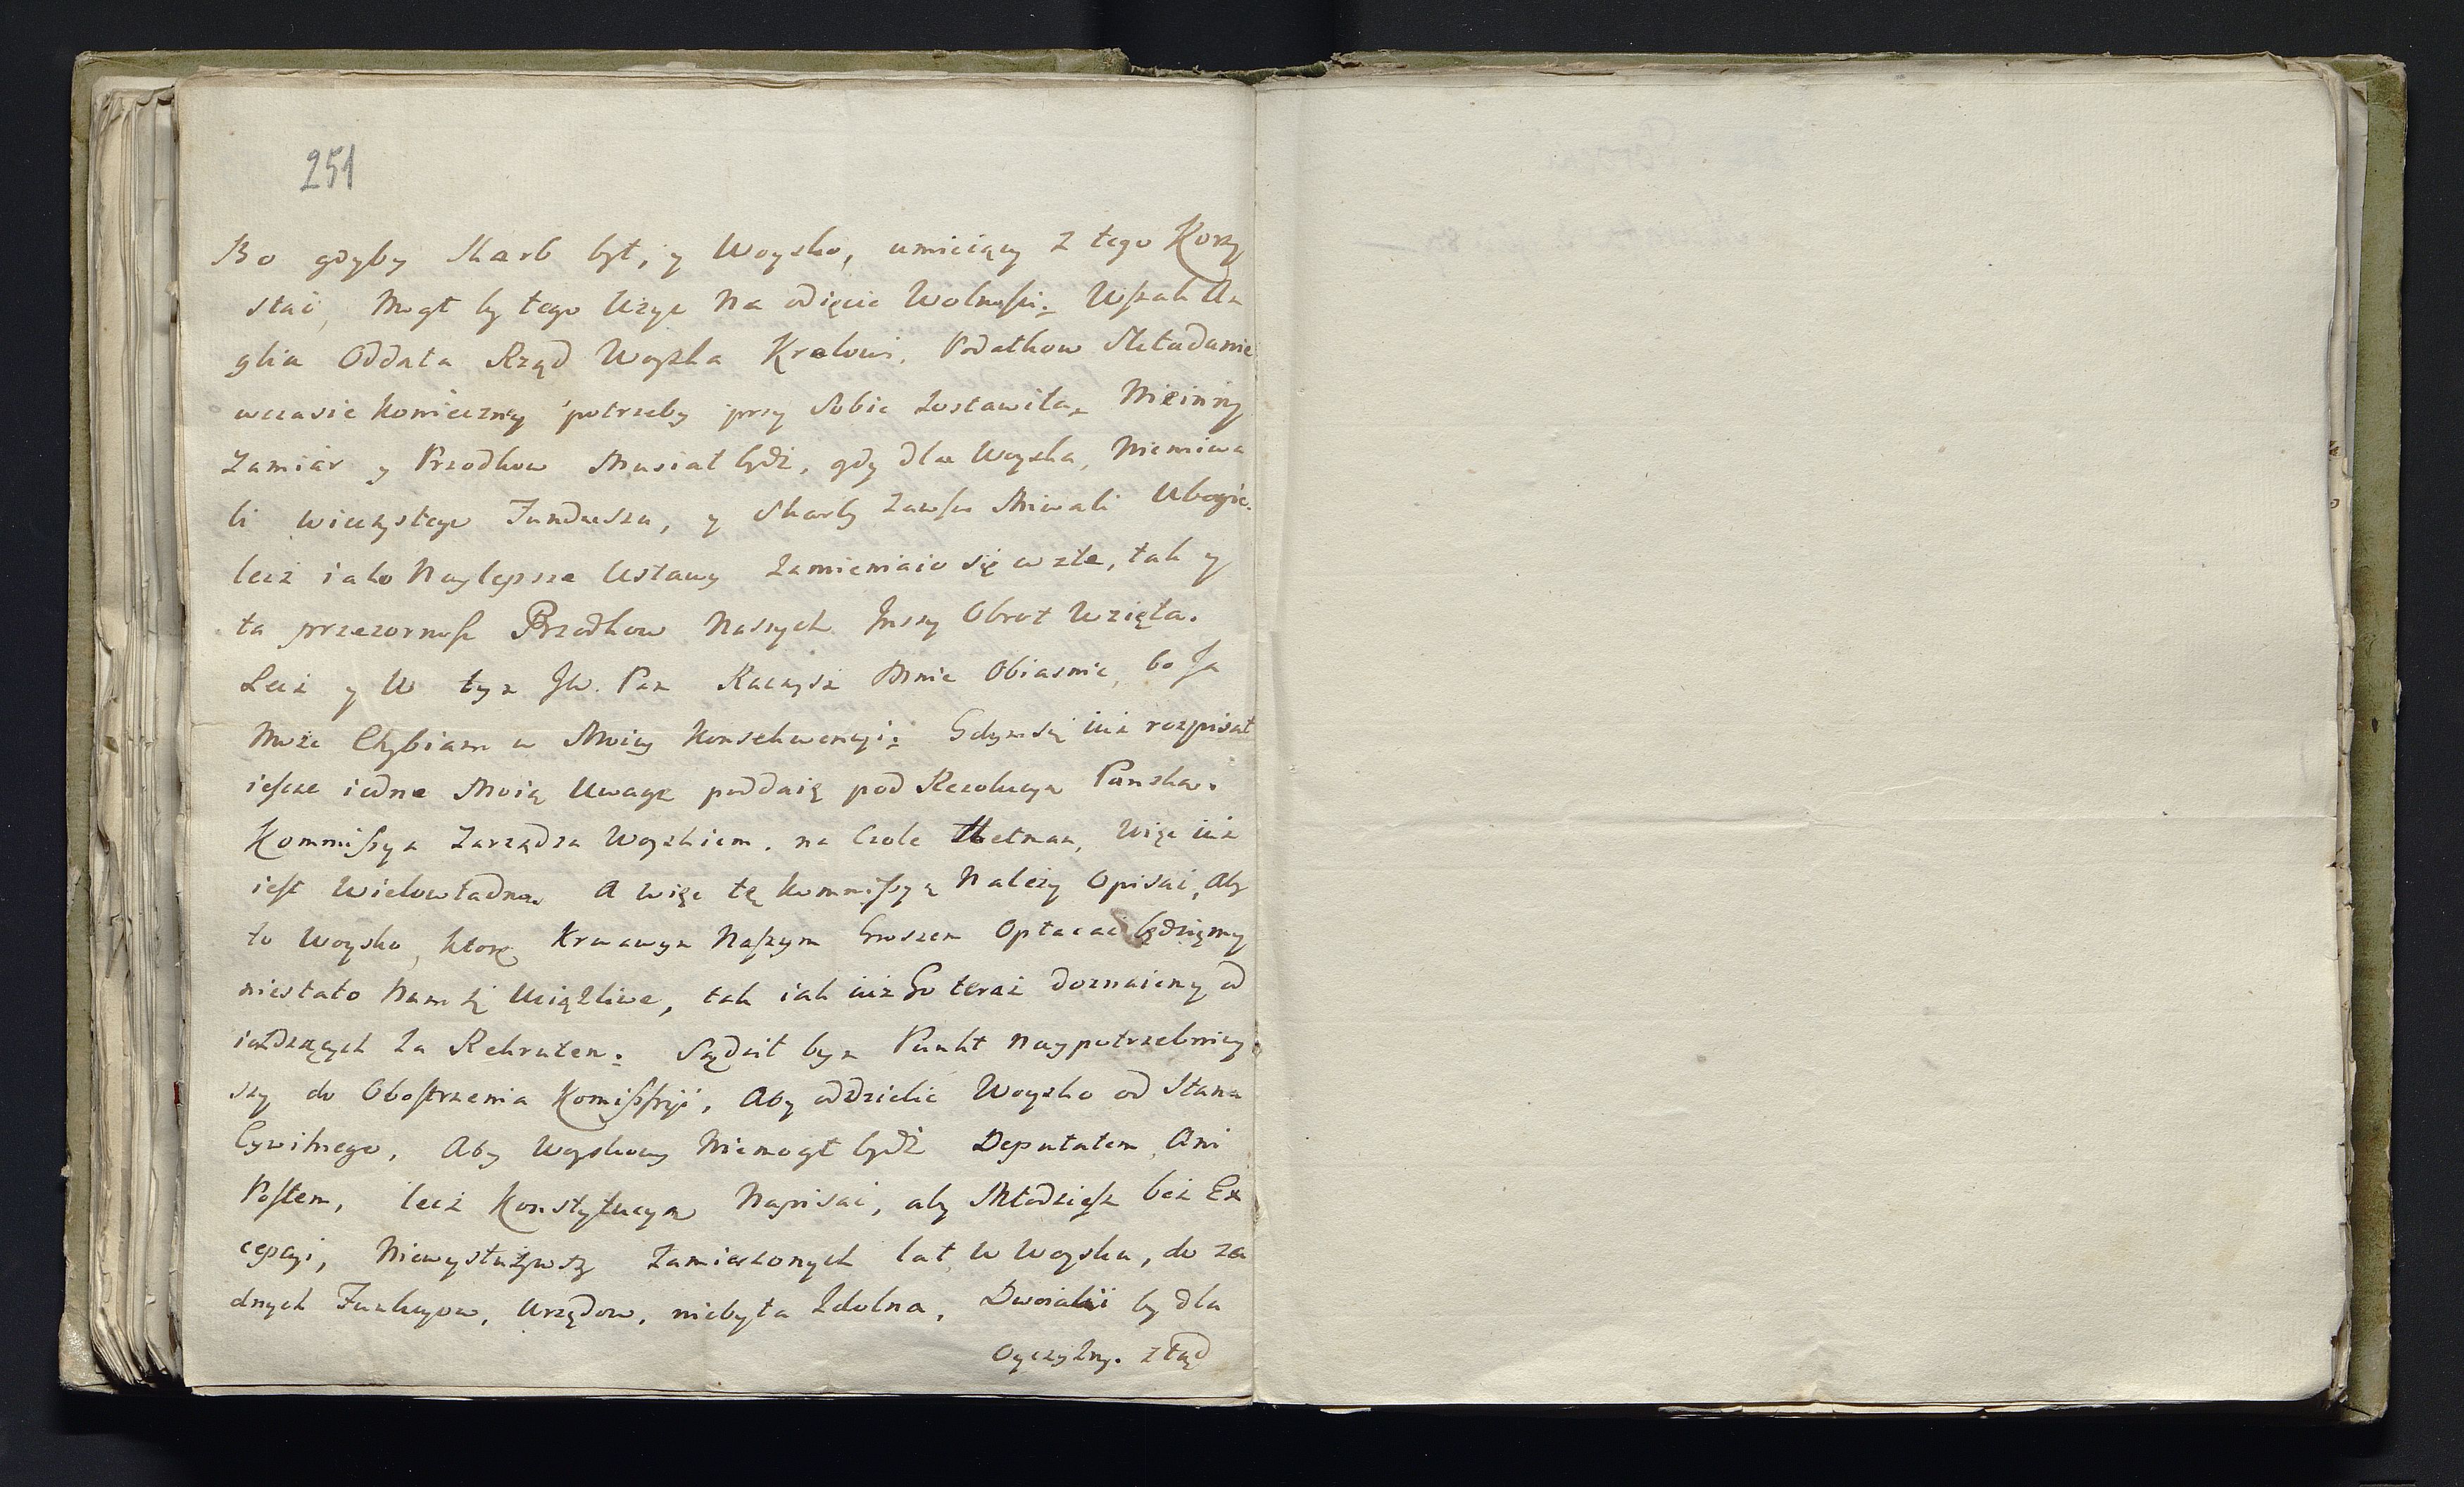 251
Bo gdyby Skarb był, y Woysko, umieiący z tego Korzy
stać, Mogł by tego Użyc Na odięcie Wolnośći. Wszak An
glia Oddała Rząd Woyska Krolowi. Podatkow Składanie
wczasie konieczney potrzeby przy Sobie Zostawiła. Nieinny
Zamiar y Przodkow Musiał bydź, gdy dla Woyska, Niemiwa
li wieczystego Funduszu, y Skarb Zawsze Miwali Ubogie.
lecz iako Naylepsze Ustawy Zamieniaio się w złe, tak y
ta przezorność Przodkow Naszych Jnszy Obrot Wzięła.
Lecz y W tym JW. Pan Raczysz Mnie Obiasnic, bo Ja
Może Chybiam w Moiey Konsekwencyi. Gdym się iuż rozpisał
ieszcze iedne Moię Uwagę poddaię pod Rezolucyą Panska.
Kommissya Zarządza Woyskiem. na Czole Hetman, Więc iuż
iest Wielowładna. A więc tę kommissyą Należy Opisać, Aby
to Woysko, ktore Krwawym Naszym Groszem Opłacać będziemy
niestało Nam się Uciążliwe, tak iak iuż Go teraz doznaiemy od
ieżdzących Za Rekrutem. Sądził bym Punkt naypotrzebniey
szy do Obostrzenia Komissyi, Aby oddzielic Woysko od Stanu
Cywilnego, Aby Woyskowy Niemogł bydź Deputatem, Ani
Posłem, lecz Konstytucyą Napisać, aby Młodziesz bez Ex
cepcyi, Niewysłużywszy Zamierzonych lat w Woysku, do ża
dnych Funkcyow, Urzędow, niebyła Zdolna, Dwoiaki by dla
Oyczyzny. ztąd